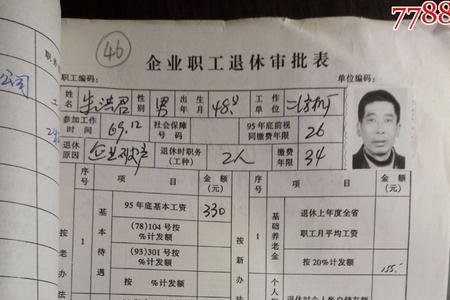 7788
46
企业职工退休审批表
职工编码: 单位编码:
公司
姓名 朱洪君 性别 男 出生年月 48.9 工作单位
参加工作时间 69.12 社会保障号码 95年底前视同缴费年限 26
退休原因 企业 退休时职务(工种) 工人 缴费年限 34
序号 项目 金额(元) 序号 项目 金额(元)
1 基本待遇 95年底基本工资 330 1 基础养老金 退休上年度全省职工月平均工资
(78)104号按 %计发额
(93)301号按 %计发额 按20%计发额 155.
按老办法
按新办法
个人